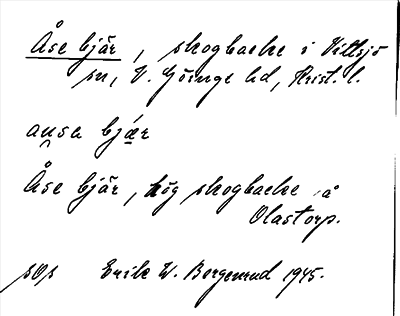 Åse bjär, skogbacke i Vittsjö
sn, V. Göinge hd, Krist. l.
ausa bjær
Åse bjär, hög skogbacke å
Olastorp.
sOs Erik W. Bergenrud 1945.